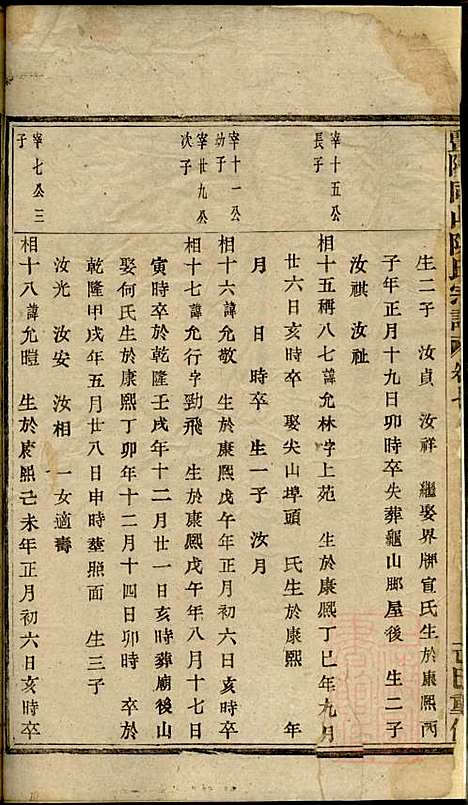 暨陽南山陳氏宗譜 卷七
生二子 汝貞 汝祥 繼娶界牌宣氏生於康熙丙
子年正月十九日卯時卒失葬龜山脚屋後 生二子
汝祺 汝祉
宰十五公
長子
相十五稱八七諱允林字上苑 生於康熙丁巳年九月
廿六日亥時卒 娶尖山埠頭 氏生於康熙 年
月 日 時卒 生一子 汝月
宰十一公
幼子
相十六諱允敬 生於康熙戊午年正月初六日亥時卒
宰廿九公
次子
相十七諱允行字勁飛 生於康熙戊午年八月十七日
寅時卒於乾隆壬戌年十二月廿一日亥時葬廟後山
娶何氏生於康熙丁卯年十二月十四日卯時 卒於
乾隆甲戌年五月廿八日申時葬照面 生三子
汝光 汝安 汝相 一女適壽
宰七公三
子
相十八諱允暟 生於康熙己未年正月初六日亥時卒